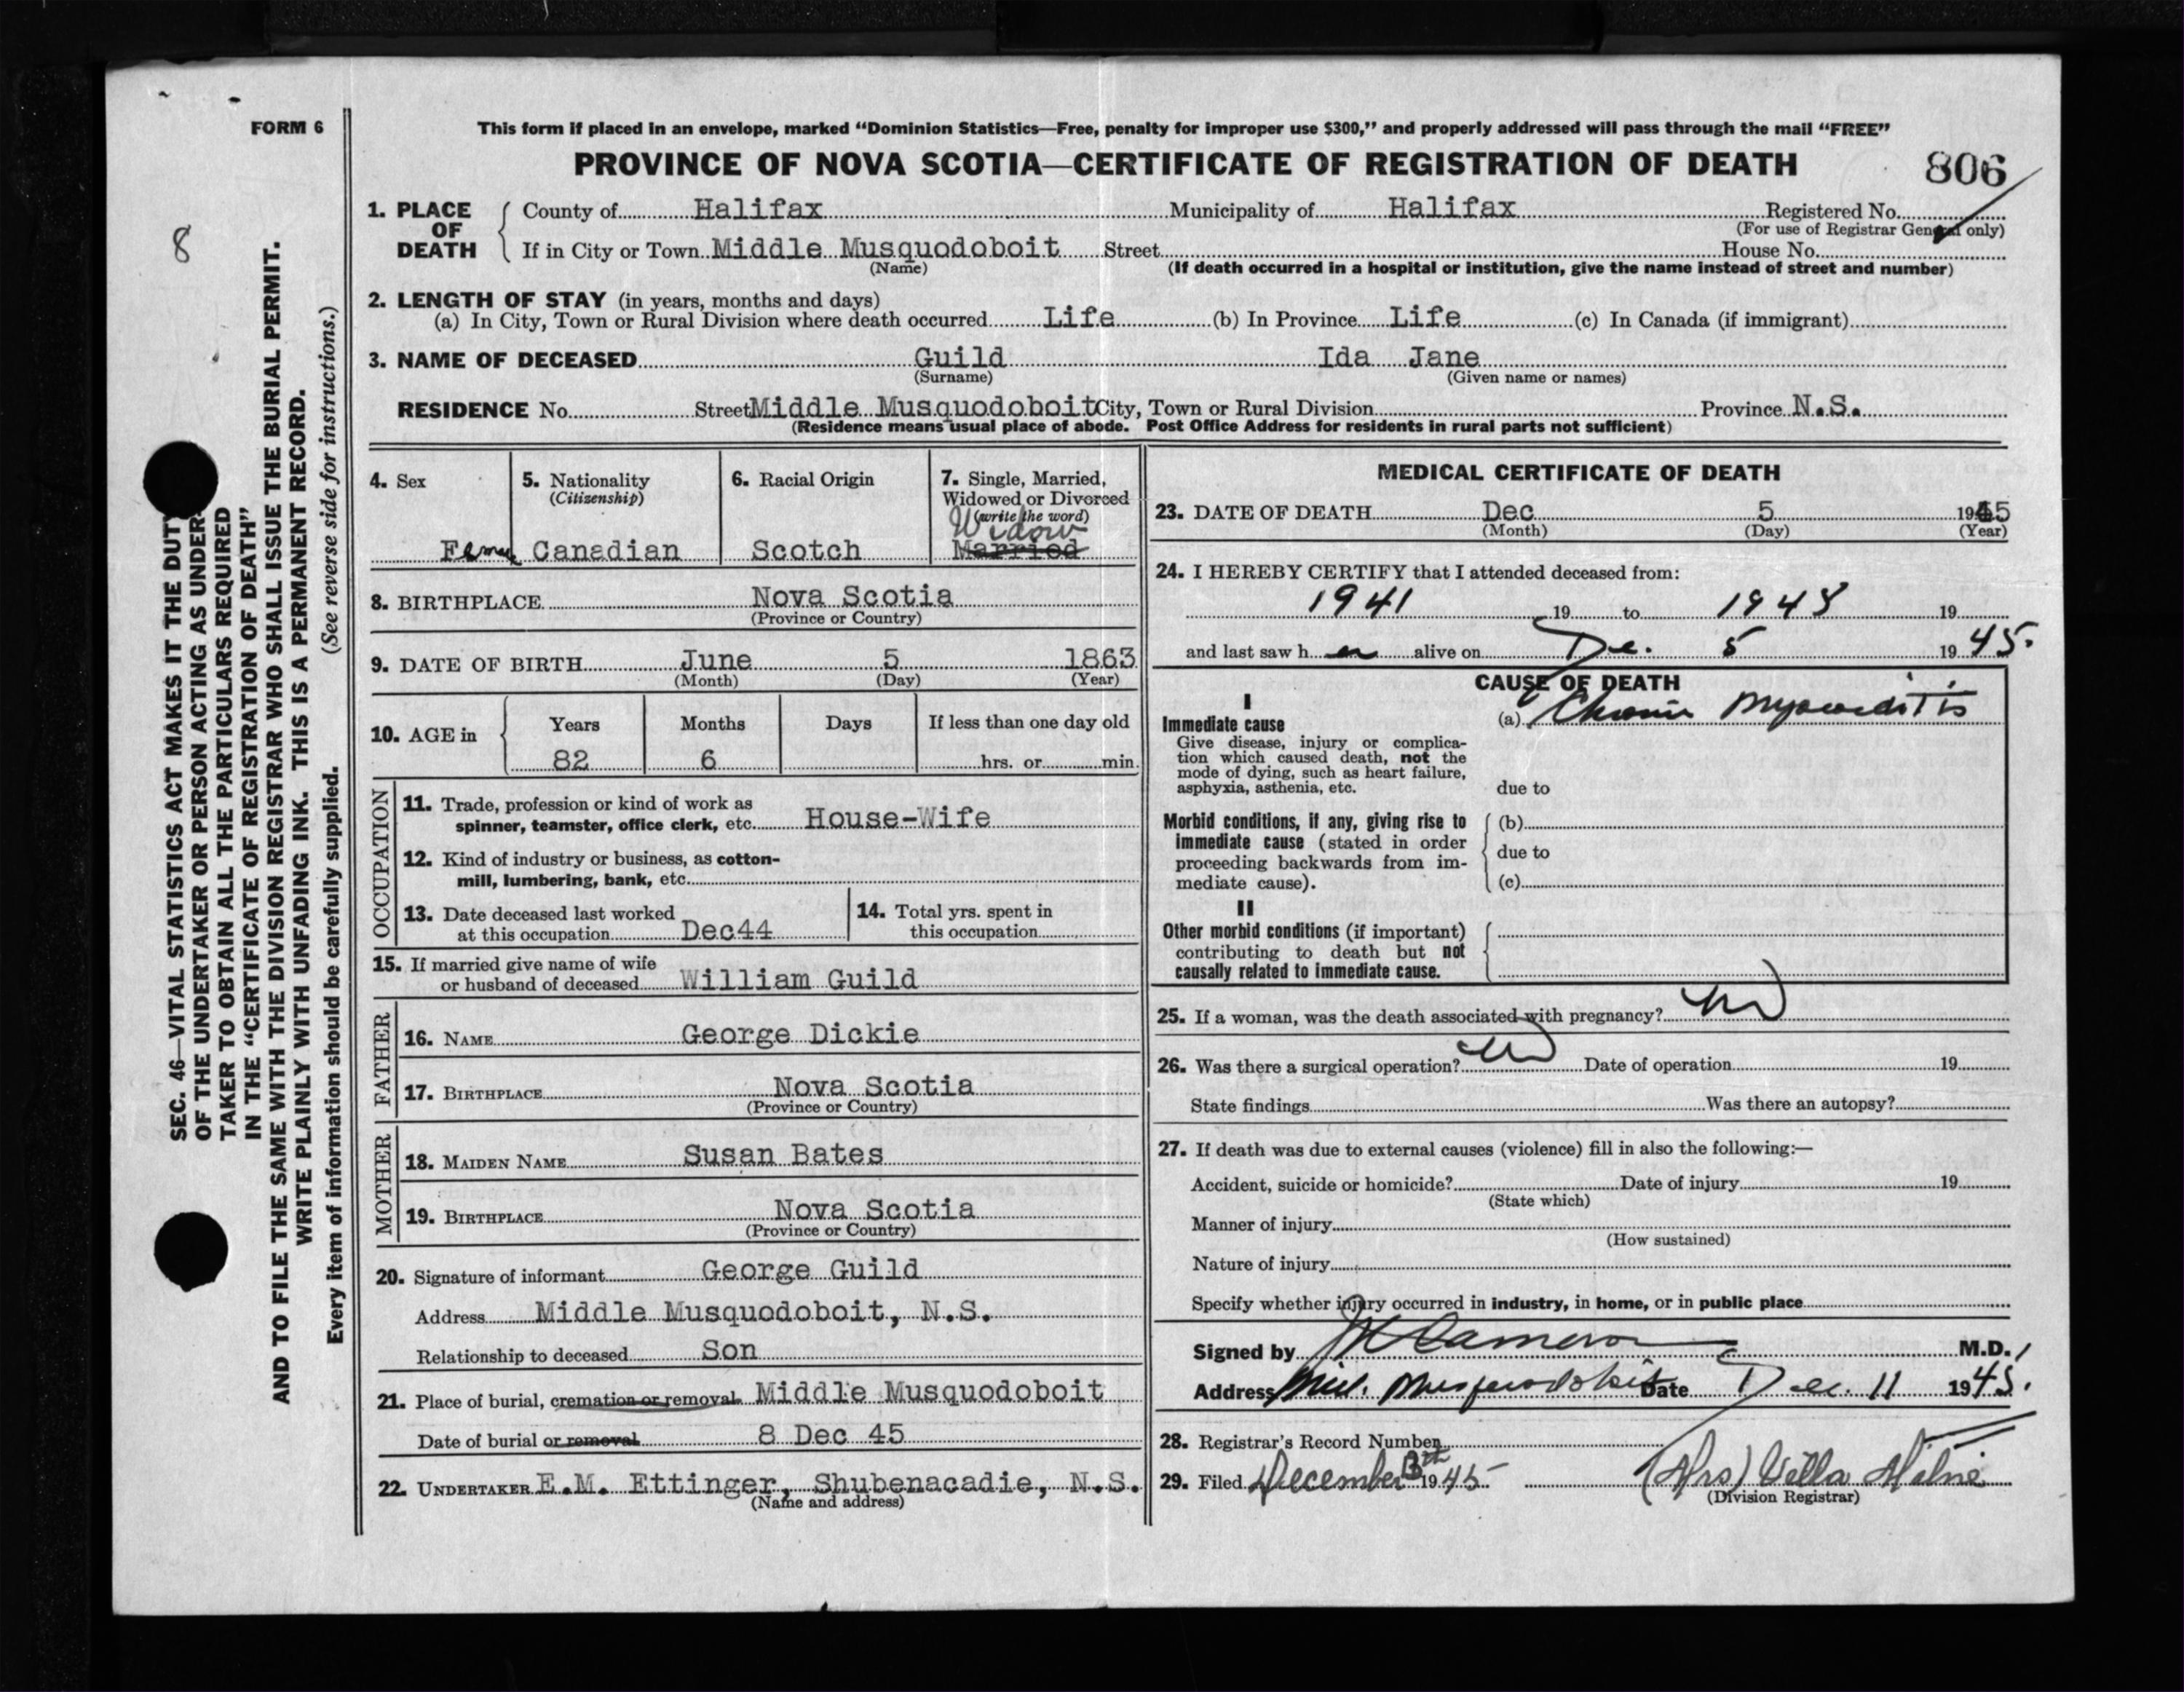 FORM 6
This form if placed in an envelope, marked “Dominion Statistics—Free, penalty for improper use $300,” and properly addressed will pass through the mail “FREE”
PROVINCE OF NOVA SCOTIA—CERTIFICATE OF REGISTRATION OF DEATH
806
8
SEC. 46—VITAL STATISTICS ACT MAKES IT THE DUTY
OF THE UNDERTAKER OR PERSON ACTING AS UNDER-
TAKER TO OBTAIN ALL THE PARTICULARS REQUIRED
IN THE “CERTIFICATE OF REGISTRATION OF DEATH”
AND TO FILE THE SAME WITH THE DIVISION REGISTRAR WHO SHALL ISSUE THE BURIAL PERMIT.
WRITE PLAINLY WITH UNFADING INK. THIS IS A PERMANENT RECORD.
Every item of information should be carefully supplied. (See reverse side for instructions.)
1. PLACE OF DEATH
County of Halifax Municipality of Halifax Registered No.
(For use of Registrar General only)
If in City or Town Middle Musquodoboit Street House No.
(Name) (If death occurred in a hospital or institution, give the name instead of street and number)
2. LENGTH OF STAY (in years, months and days)
(a) In City, Town or Rural Division where death occurred Life (b) In Province Life (c) In Canada (if immigrant)
3. NAME OF DECEASED Guild Ida Jane
(Surname) (Given name or names)
RESIDENCE No. Street Middle Musquodoboit City, Town or Rural Division Province N.S.
(Residence means usual place of abode. Post Office Address for residents in rural parts not sufficient)
4. Sex 5. Nationality 6. Racial Origin 7. Single, Married,
(Citizenship) Widowed or Divorced
(write the word)
Widow
Canadian Scotch Married
8. BIRTHPLACE Nova Scotia
(Province or Country)
9. DATE OF BIRTH June 5 1863
(Month) (Day) (Year)
10. AGE in Years Months Days If less than one day old
82 6 hrs. or min.
OCCUPATION
11. Trade, profession or kind of work as
spinner, teamster, office clerk, etc. House-Wife
12. Kind of industry or business, as cotton-
mill, lumbering, bank, etc.
13. Date deceased last worked 14. Total yrs. spent in
at this occupation Dec44 this occupation
15. If married give name of wife
or husband of deceased William Guild
FATHER
16. NAME George Dickie
17. BIRTHPLACE Nova Scotia
(Province or Country)
MOTHER
18. MAIDEN NAME Susan Bates
19. BIRTHPLACE Nova Scotia
(Province or Country)
20. Signature of informant George Guild
Address Middle Musquodoboit, N.S.
Relationship to deceased Son
21. Place of burial, cremation or removal Middle Musquodoboit
Date of burial or removal 8 Dec 45
22. UNDERTAKER E.M. Ettinger, Shubenacadie, N.S.
(Name and address)
MEDICAL CERTIFICATE OF DEATH
23. DATE OF DEATH Dec 5 1945
(Month) (Day) (Year)
24. I HEREBY CERTIFY that I attended deceased from:
1941 19 to 1945 19
and last saw h er alive on De. 5 1945.
CAUSE OF DEATH
I
Immediate cause (a) Chronic Myocarditis
Give disease, injury or complica-
tion which caused death, not the
mode of dying, such as heart failure,
asphyxia, asthenia, etc. due to
Morbid conditions, if any, giving rise to (b)
immediate cause (stated in order
proceeding backwards from im- due to
mediate cause). (c)
II
Other morbid conditions (if important)
contributing to death but not
causally related to immediate cause.
25. If a woman, was the death associated with pregnancy? no
26. Was there a surgical operation? no Date of operation 19
State findings Was there an autopsy?
27. If death was due to external causes (violence) fill in also the following:—
Accident, suicide or homicide? Date of injury 19
(State which)
Manner of injury
(How sustained)
Nature of injury
Specify whether injury occurred in industry, in home, or in public place
Signed by Cameron M.D.
Address Mid. Musquodoboit Date Dec. 11 1945.
28. Registrar’s Record Number
29. Filed December 13th 1945 (Mrs) Vella Milne
(Division Registrar)